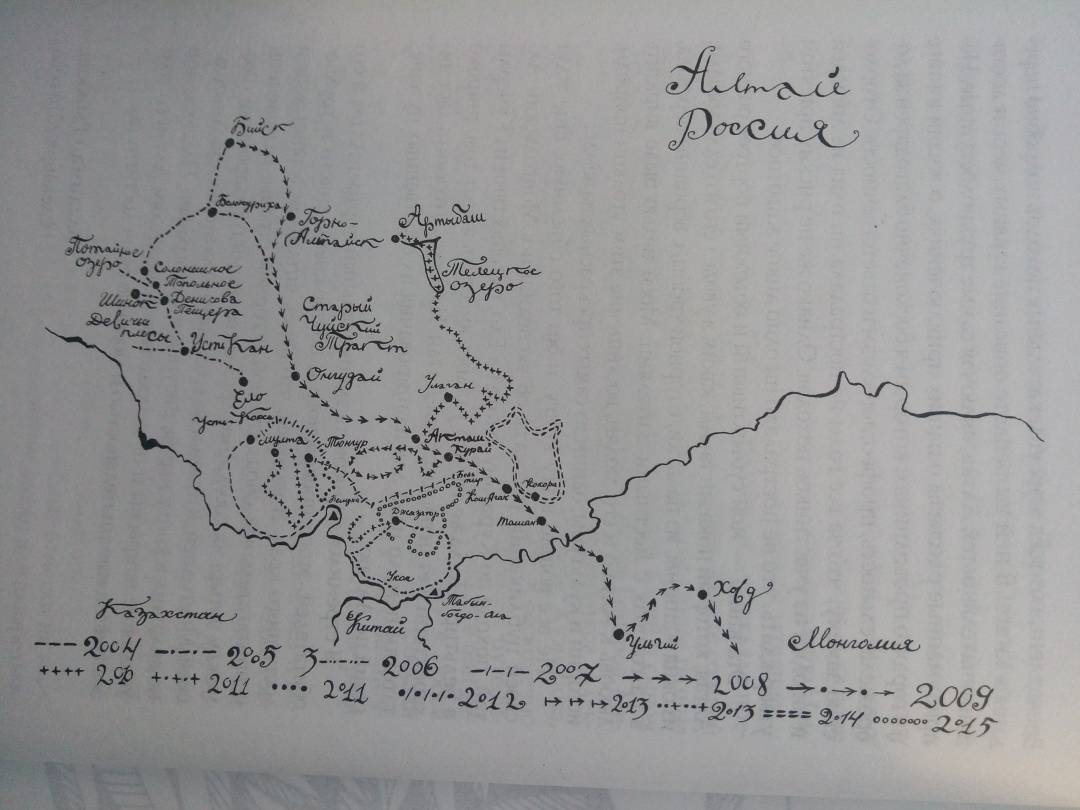 Алтай
Россия
Бийск
Белокуриха
Горно-
Алтайск
Артыбаш
Телецкое
озеро
Потайное
озеро
Солонешное
Топольное
Шинок
Денисова
Пещера
Девичьи
плесы
Усть Кан
Старый
Чуйский
Тракт
Ело
Онгудай
Улаган
Усть-Кокса
Мульта
Тюнгур
Акташ
Курай
Бель
тир
Кош Агач
Кокоря
Белуха
Джазатор
Ташанта
Укок
Табын-
богдо-ола
Казахстан
Китай
Ульгий
Ховд
Монголия
2004
2005
3
2006
2007
2008
2009
2011
2011
2012
2013
2013
2014
2015